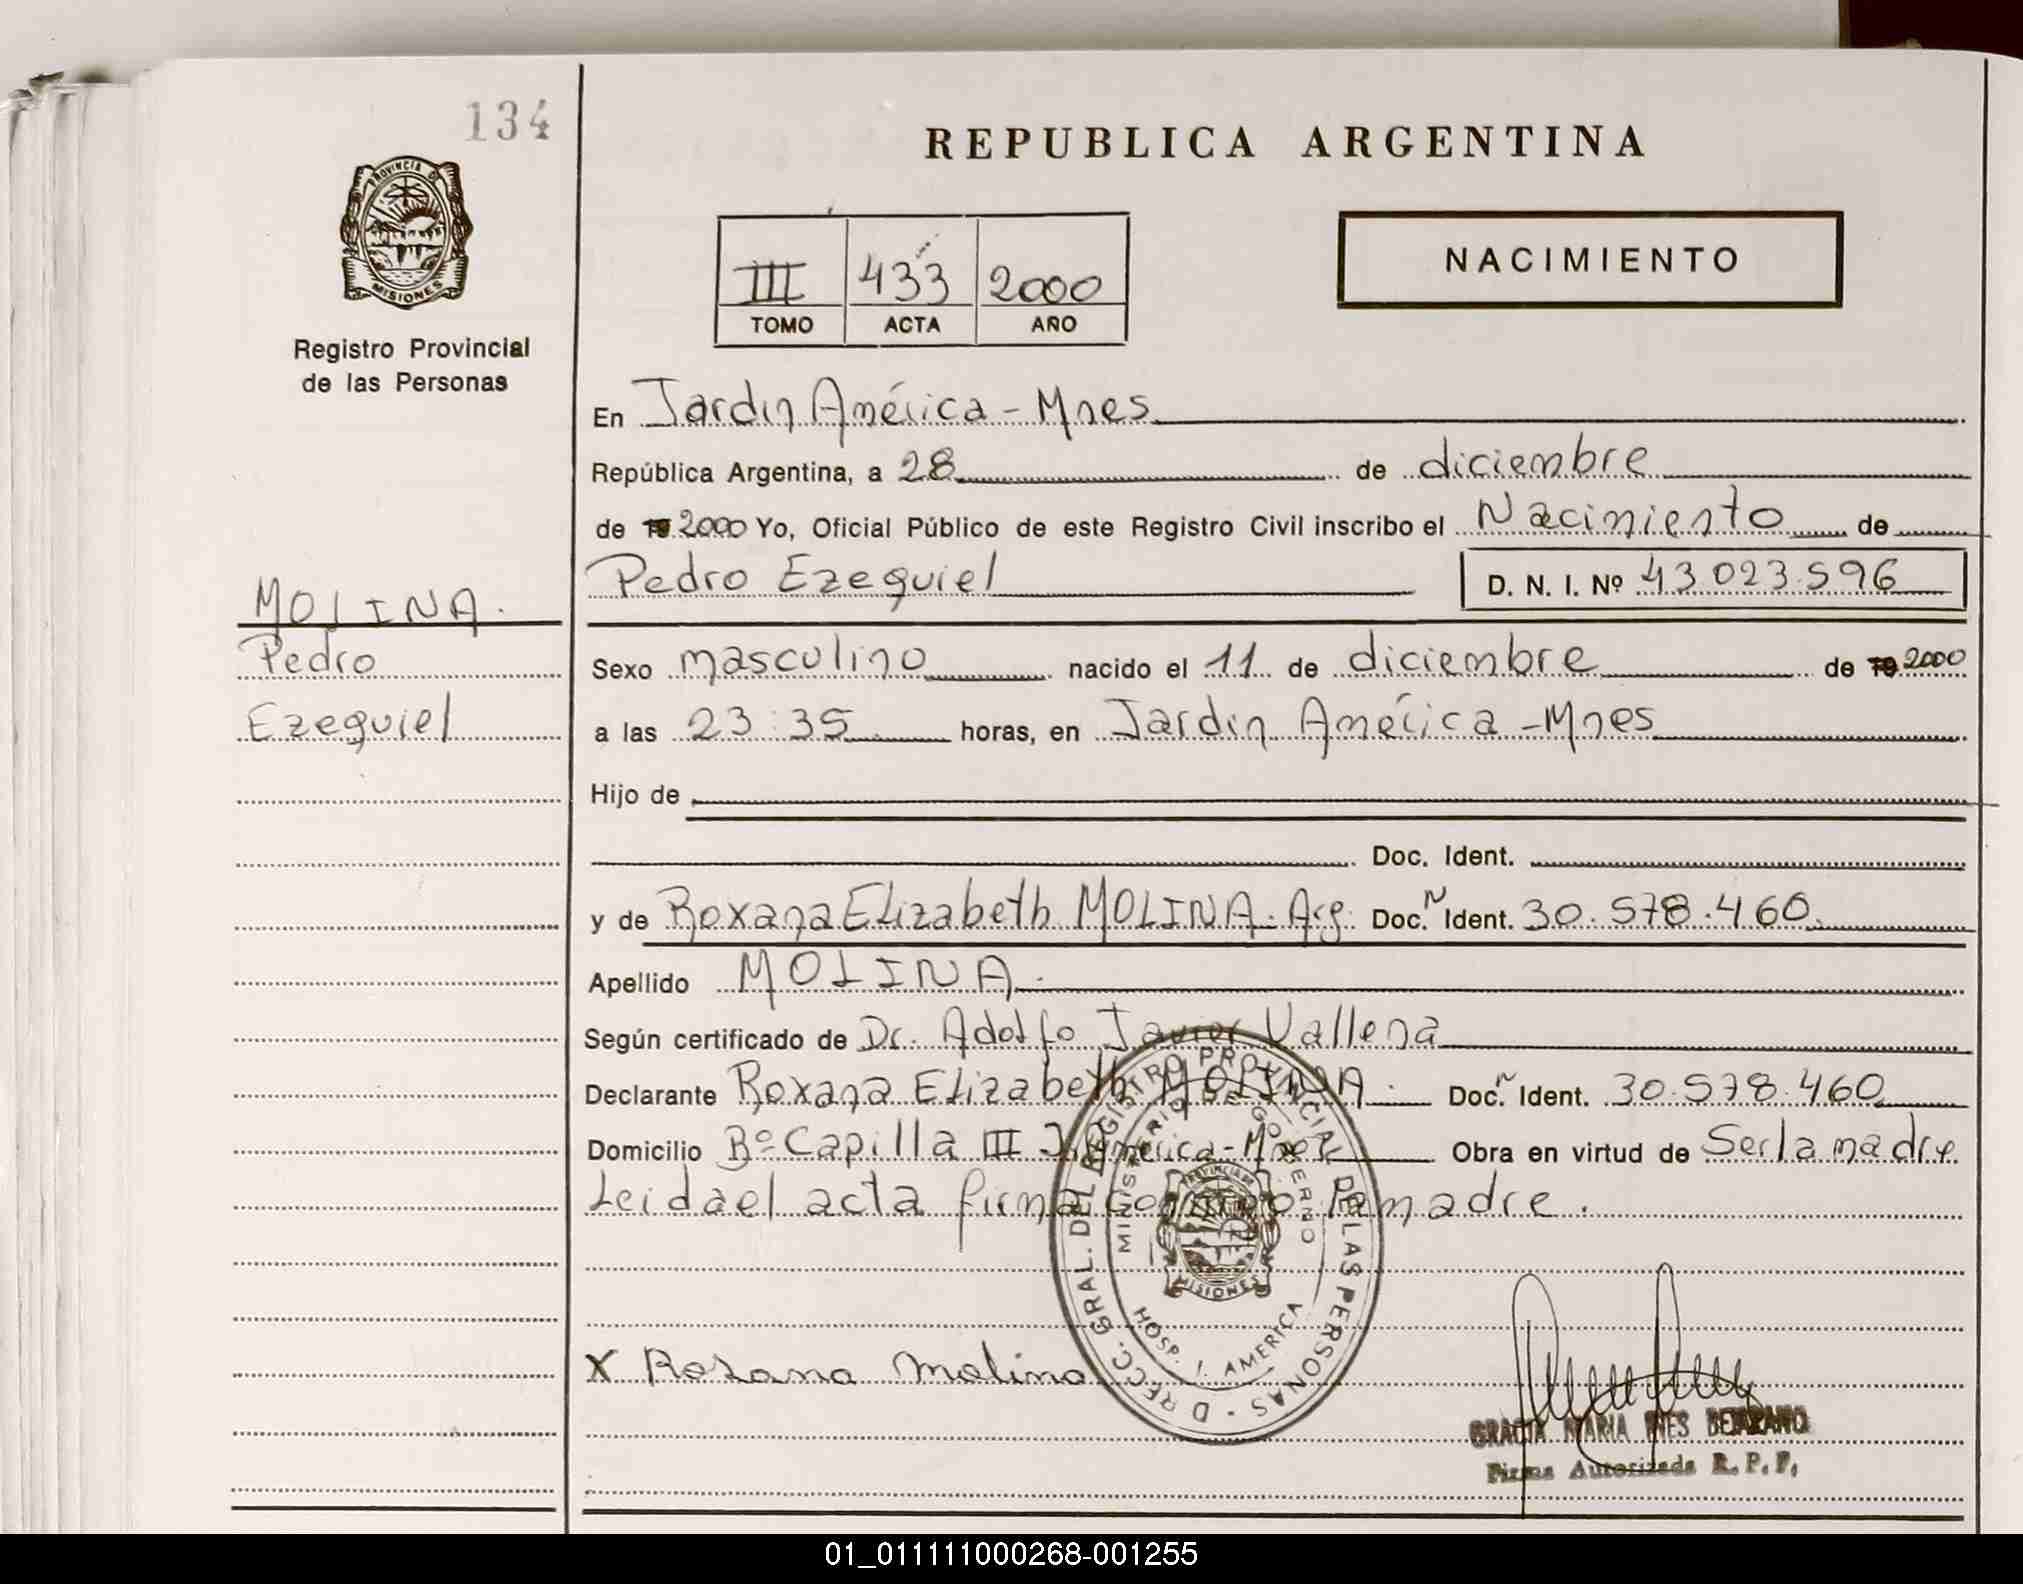 134
REPUBLICA ARGENTINA
PROVINCIA DE
MISIONES
Registro Provincial
de las Personas
III 433 2000
TOMO ACTA AÑO
NACIMIENTO
En Jardin América - Mnes
República Argentina, a 28 de diciembre
de 19 2000 Yo, Oficial Público de este Registro Civil inscribo el Nacimiento de
Pedro Ezequiel D. N. I. Nº 43.023.596
MOLINA.
Pedro
Ezequiel
Sexo masculino nacido el 11 de diciembre de 19 2000
a las 23:35 horas, en Jardin América - Mnes
Hijo de
Doc. Ident.
y de Roxana Elizabeth MOLINA. Arg. Doc. N Ident. 30.578.460
Apellido MOLINA.
Según certificado de Dr. Adolfo Javier Vallena
Declarante Roxana Elizabeth MOLINA. Doc. N Ident. 30.578.460
Domicilio Bº Capilla III J. América - Mnes Obra en virtud de Ser la madre
Leida el acta firma conmigo la madre.
DIRECC. GRAL. DEL REGISTRO PROVINCIAL DE LAS PERSONAS
MINISTERIO DE GOBIERNO
PROVINCIA DE
MISIONES
HOSP. J. AMERICA
X Roxana Molina
GRACIA MARIA INES
Firma Autorizada R. P. P.
01_011111000268-001255